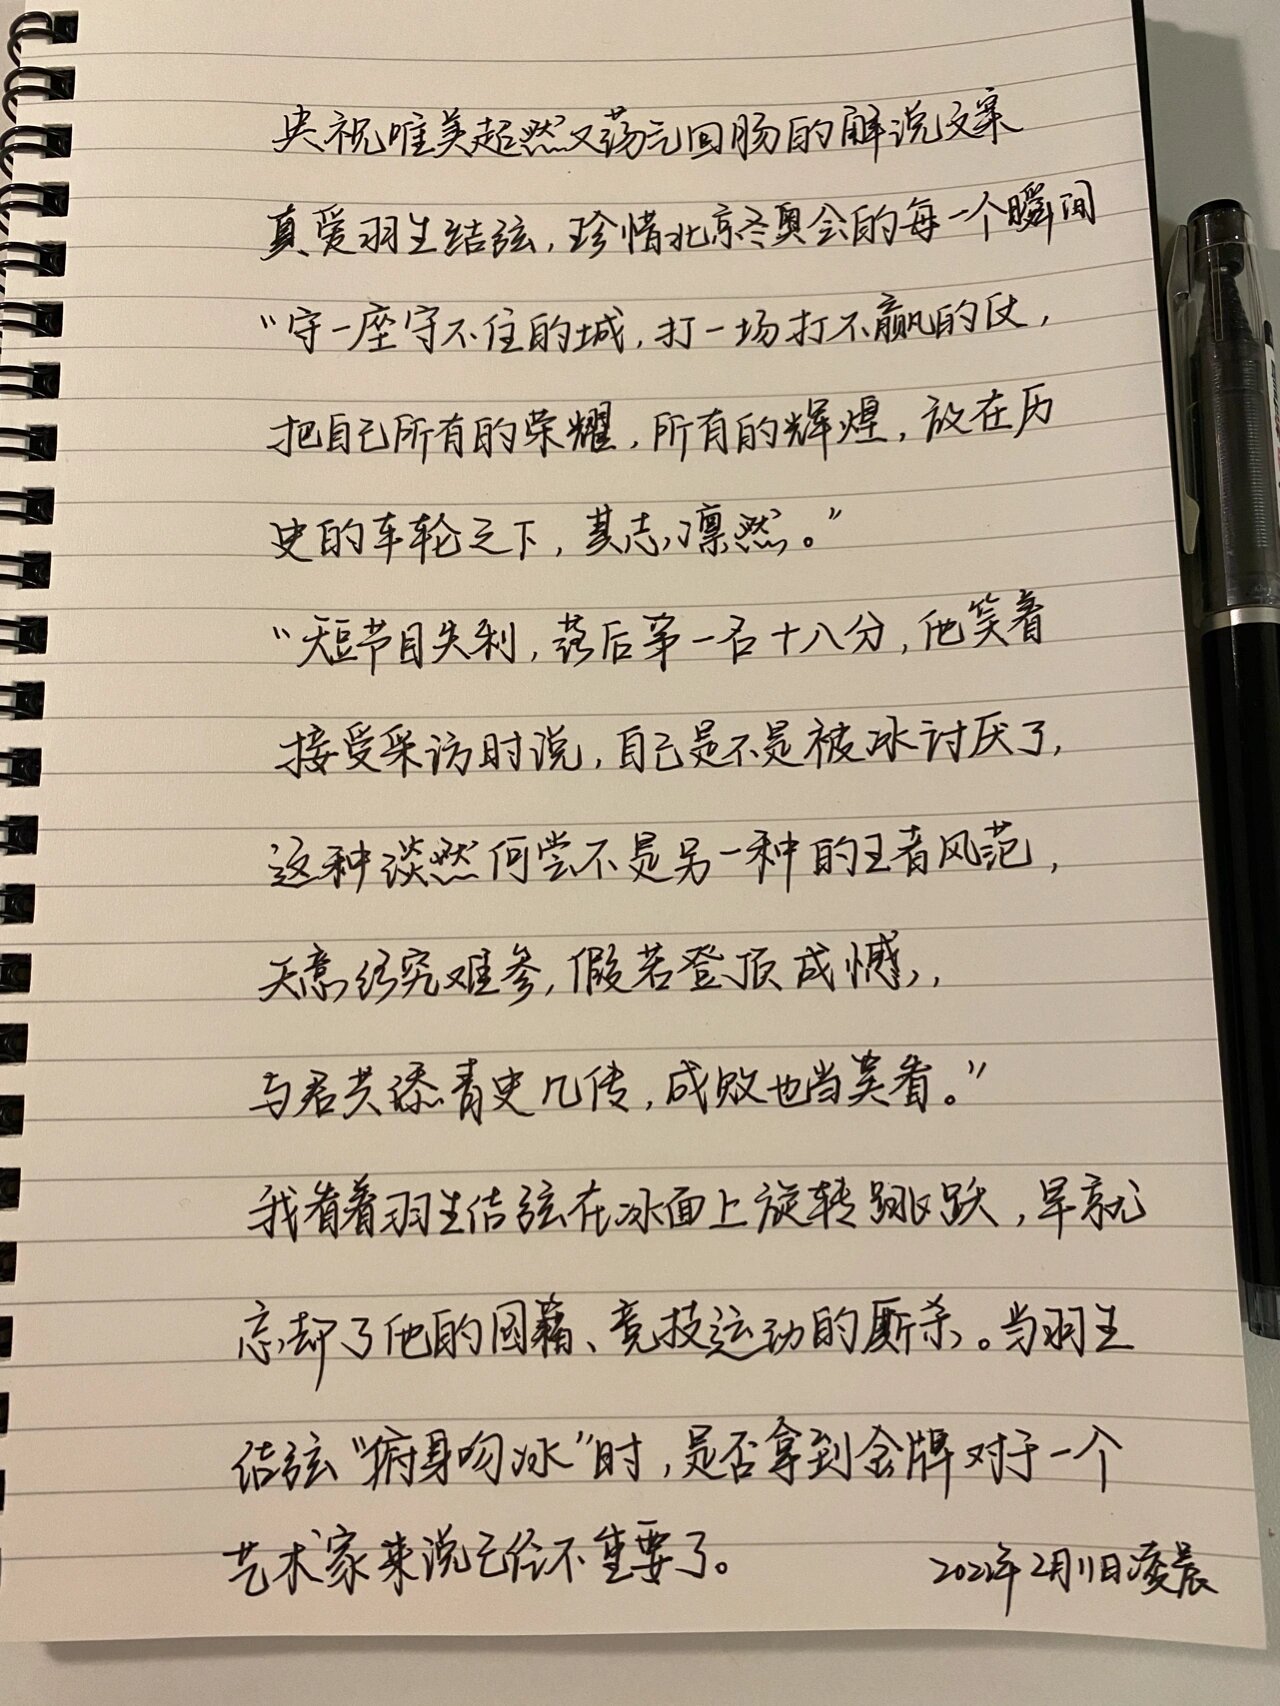 央视唯美超然又荡气回肠的解说文案
真爱羽生结弦，珍惜北京冬奥会的每一个瞬间
“守一座守不住的城，打一场打不赢的仗，
把自己所有的荣耀，所有的辉煌，放在历
史的车轮之下，其志凛然。”
“短节目失利，落后第一名十八分，他笑着
接受采访时说，自己是不是被冰讨厌了，
这种淡然何尝不是另一种的王者风范，
天意终究难参，假若登顶成憾，
与君共添青史几传，成败也当笑看。”
我看着羽生结弦在冰面上旋转跳跃，早就
忘却了他的国籍、竞技运动的厮杀。当羽生
结弦“俯身吻冰”时，是否拿到金牌对于一个
艺术家来说已经不重要了。
2022年2月11日凌晨